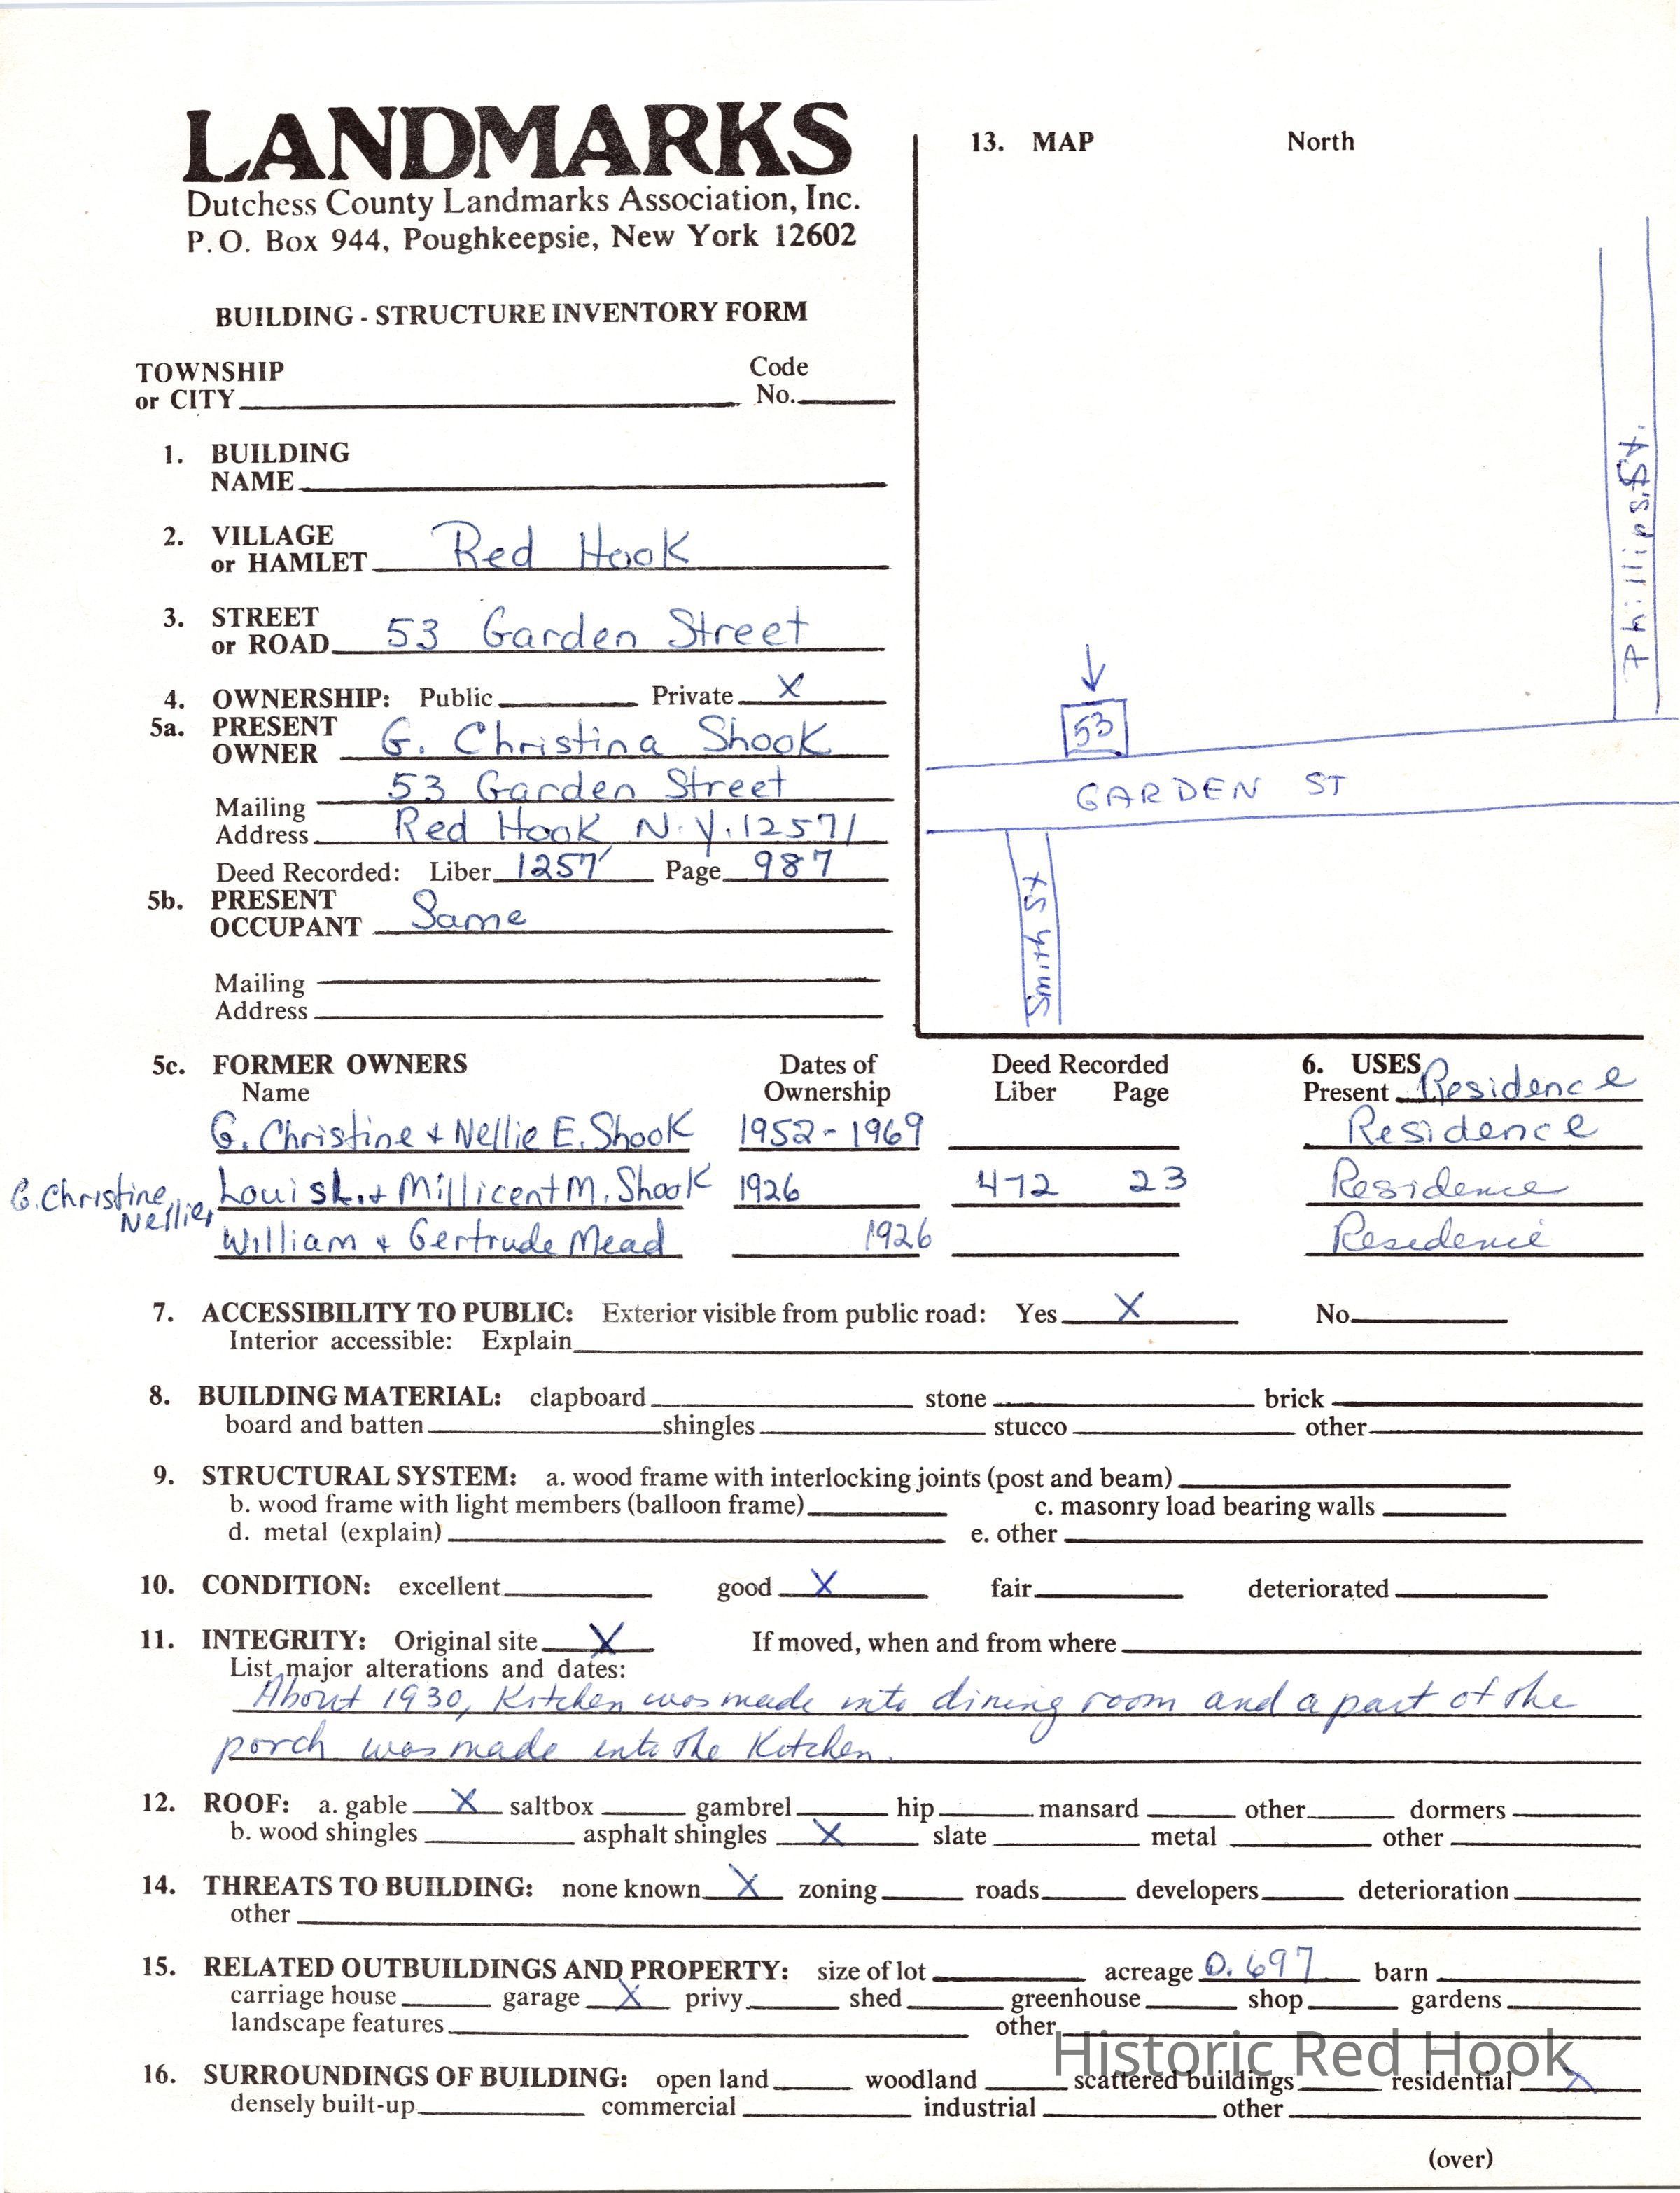 LANDMARKS
Dutchess County Landmarks Association, Inc.
P.O. Box 944, Poughkeepsie, New York 12602
BUILDING - STRUCTURE INVENTORY FORM
TOWNSHIP
or CITY
Code
No.
1. BUILDING
NAME
2. VILLAGE
or HAMLET Red Hook
3. STREET
or ROAD 53 Garden Street
4. OWNERSHIP: Public Private X
5a. PRESENT
OWNER G. Christina Shook
53 Garden Street
Mailing
Address Red Hook N.Y. 12571
Deed Recorded: Liber 1257 Page 987
5b. PRESENT
OCCUPANT Same
Mailing
Address
13. MAP North
Phillips St.
53
GARDEN ST
Smith St
5c. FORMER OWNERS Dates of Deed Recorded 6. USES
Name Ownership Liber Page Present Residence
G. Christine + Nellie E. Shook 1952-1969 Residence
G. Christine, Nellie, Louis L. + Millicent M. Shook 1926 472 23 Residence
William + Gertrude Mead 1926 Residence
7. ACCESSIBILITY TO PUBLIC: Exterior visible from public road: Yes X No
Interior accessible: Explain
8. BUILDING MATERIAL: clapboard stone brick
board and batten shingles stucco other
9. STRUCTURAL SYSTEM: a. wood frame with interlocking joints (post and beam)
b. wood frame with light members (balloon frame) c. masonry load bearing walls
d. metal (explain) e. other
10. CONDITION: excellent good X fair deteriorated
11. INTEGRITY: Original site X If moved, when and from where
List major alterations and dates:
About 1930, Kitchen was made into dining room and a part of the
porch was made into the Kitchen.
12. ROOF: a. gable X saltbox gambrel hip mansard other dormers
b. wood shingles asphalt shingles X slate metal other
14. THREATS TO BUILDING: none known X zoning roads developers deterioration
other
15. RELATED OUTBUILDINGS AND PROPERTY: size of lot acreage 0.697 barn
carriage house garage X privy shed greenhouse shop gardens
landscape features other
Historic Red Hook
16. SURROUNDINGS OF BUILDING: open land woodland scattered buildings residential X
densely built-up commercial industrial other
(over)